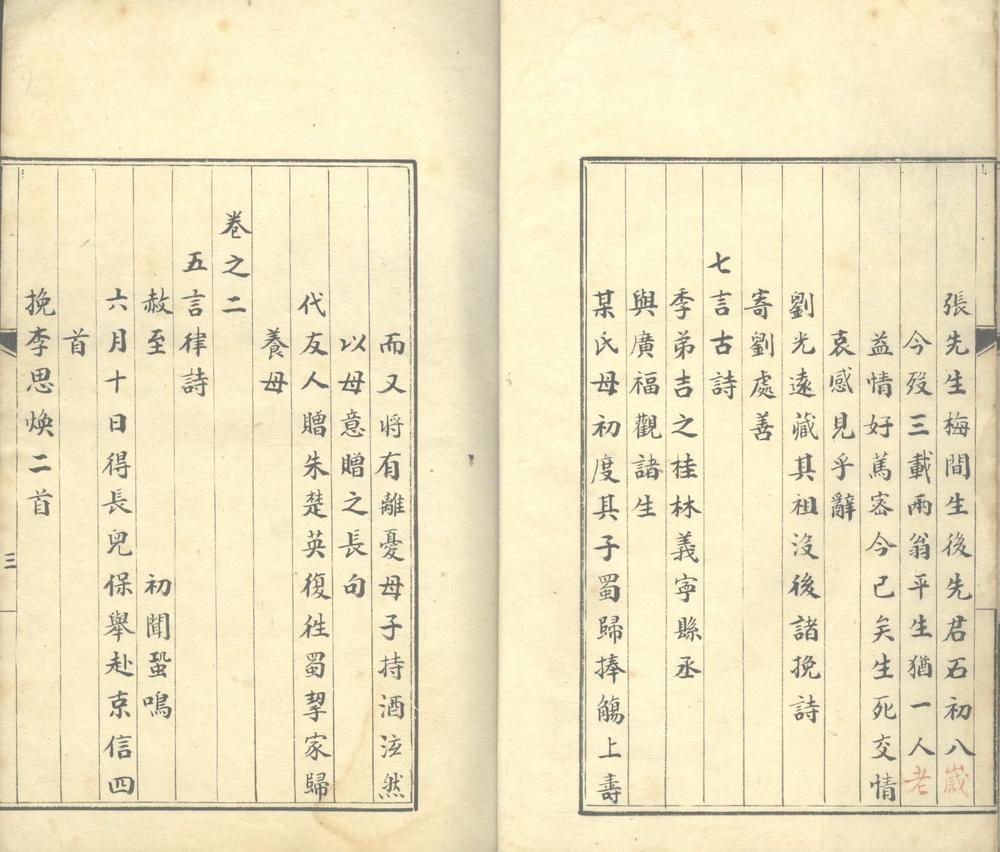 張先生梅間生後先君石初八歲
今歿三載兩翁平生猶一人老
益情好篤密今已矣生死交情
哀感見乎辭
劉光遠藏其祖沒後諸挽詩
寄劉處善
七言古詩
季弟吉之桂林義寧縣丞
與廣福觀諸生
某氏母初度其子蜀歸捧觴上壽
而又將有離憂母子持酒泫然
以母意贈之長句
代友人贈朱楚英復徃蜀挈家歸
養母
卷之二
五言律詩
赦至 初聞蛩鳴
六月十日得長兒保舉赴京信四
首
挽李思煥二首
三